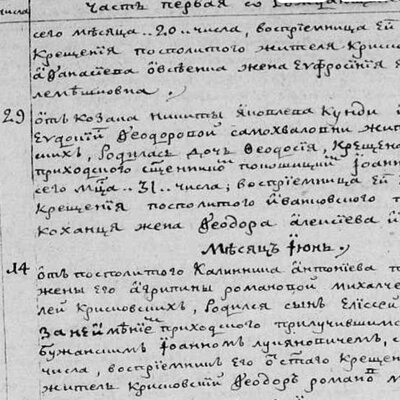 часть первая
числа
сего мѣсяца .. 20 .. числа, воспрїемница ей
крещенїя посполитого жителя Крисно
аѳанасїева овсѣенка жена Еуфросїнїя
лемѣшновна .
29
отъ козака никиты яковлева кунди и
Ѳеодоровой самохваловни жит
скихъ, родилась дочь Ѳеодосїя, крещена
приходского сщенника їоанн
сего мца .. 31 .. числа; воспрїемница ей
крещенїя посполитого їванковского
коханца жена Ѳеодора алексїева
Мѣсяцъ їюнь .
14
отъ посполитого Калинника антонїева
жены его агрипины романовой михалче
лей крисковскихъ, родился сынъ Елїссей
за неимѣнїем приходского прилучившимс
бужанскимъ їоанномъ лукяновичемъ, с
числа, воспрїемникъ его от стаго крещен
житель крисковскїй Ѳеодоръ романов